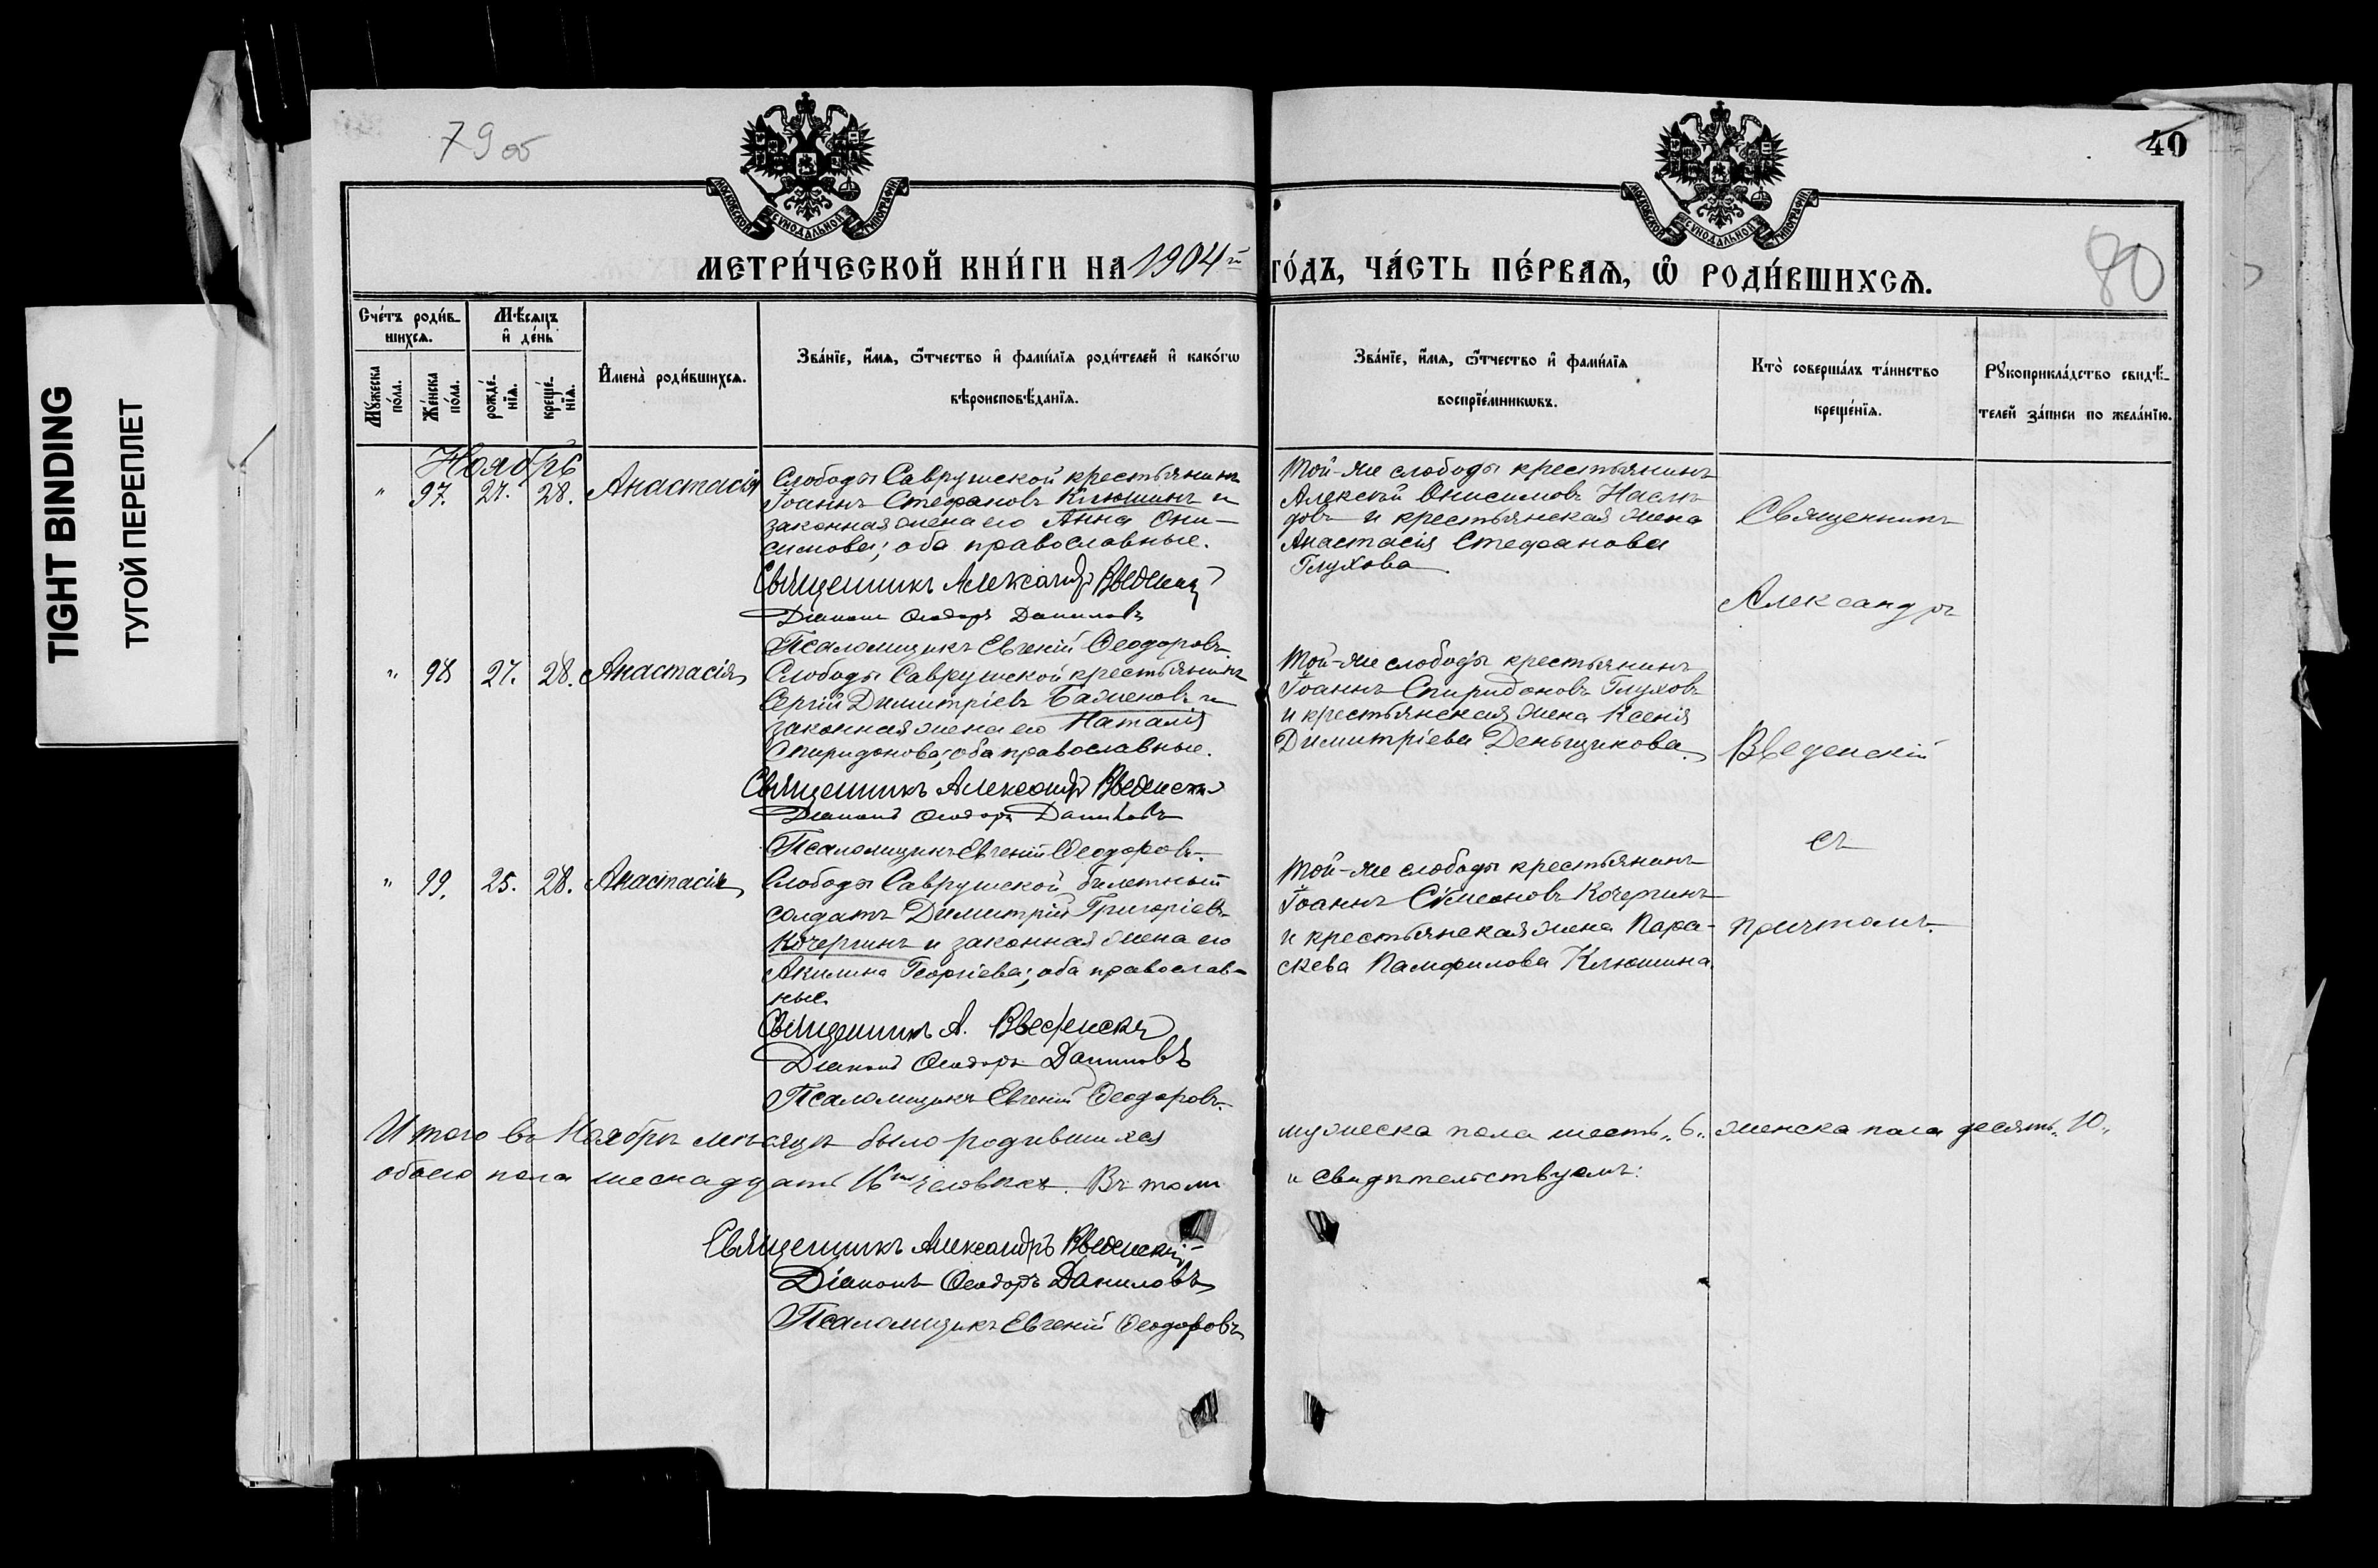 TIGHT BINDING
ТУГОЙ ПЕРЕПЛЕТ
79 об
40
80
МОСКОВСКОЙ СѴНОДАЛЬНОЙ ТИПОГРАФІИ
МОСКОВСКОЙ СѴНОДАЛЬНОЙ ТИПОГРАФІИ
МЕТРИ́ЧЕСКОЙ КНИ́ГИ НА 1904й ГО́ДЪ, ЧА́СТЬ ПЕ́РВАѦ, Ѡ҆ РОДИ́ВШИХСѦ.
Сче́тъ роди́в-
шихсѧ.
Мꙋ́жеска по́ла.
Же́нска по́ла.
Мѣ́сѧцъ
и҆ де́нь
рожде́-
нїѧ.
креще́-
нїѧ.
И҆мена̀ роди́вшихсѧ.
Зва́нїе, и҆́мѧ, ѻ҆́тчество и҆ фами́лїѧ роди́телей и҆ како́гѡ
вѣроисповѣ́данїѧ.
Зва́нїе, и҆́мѧ, ѻ҆́тчество и҆ фами́лїѧ
воспрїе́мникѡвъ.
Кто̀ соверша́лъ та́инство
креще́нїѧ.
Рꙋкоприкла́дство свидѣ́-
телей за́писи по жела́нїю.
Ноябрь
" 97. 27. 28. Анастасія
Слободы Саврушской крестьянинъ
Іоаннъ Стефановъ Клюшинъ и
законная жена его Анна Они-
симова; оба православные.
Священникъ Александръ Введенскій
Діаконъ Ѳеодоръ Даниловъ
Псаломщикъ Евгеній Ѳеодоровъ.
Той-же слободы крестьянинъ
Алексѣй Онисимовъ Наслѣ-
довъ и крестьянская жена
Анастасія Стефанова
Глухова
" 98 27. 28. Анастасія
Слободы Саврушской крестьянинъ
Сергій Димитріевъ Баженовъ и
законная жена его Наталія
Спиридонова; оба православные.
Священникъ Александръ Введенскій
Діаконъ Ѳеодоръ Даниловъ
Псаломщикъ Евгеній Ѳеодоровъ.
Той-же слободы крестьянинъ
Іоаннъ Спиридоновъ Глуховъ
и крестьянская жена Ксенія
Димитріева Деньщикова.
" 99. 25. 28. Анастасія
Слободы Саврушской билетный
солдатъ Димитрій Григоріевъ
Кочергинъ и законная жена его
Акилина Георгіева; оба православ-
ные.
Священникъ А. Введенскій
Діаконъ Ѳеодоръ Даниловъ
Псаломщикъ Евгеній Ѳеодоровъ.
Той-же слободы крестьянинъ
Іоаннъ Симеоновъ Кочергинъ
и крестьянская жена Пара-
скева Памфилова Клюшина.
Священникъ
Александръ
Введенскій
съ
причтомъ.
Итого въ Ноябрѣ мѣсяцѣ было родившихся мужеска пола шесть „6„ женска пола десять „10„
обоего пола шеснадцать 16ть человѣкъ. Въ томъ и свидѣтельствуемъ:
Священникъ Александръ Введенскій
Діаконъ Ѳеодоръ Даниловъ
Псаломщикъ Евгеній Ѳеодоровъ